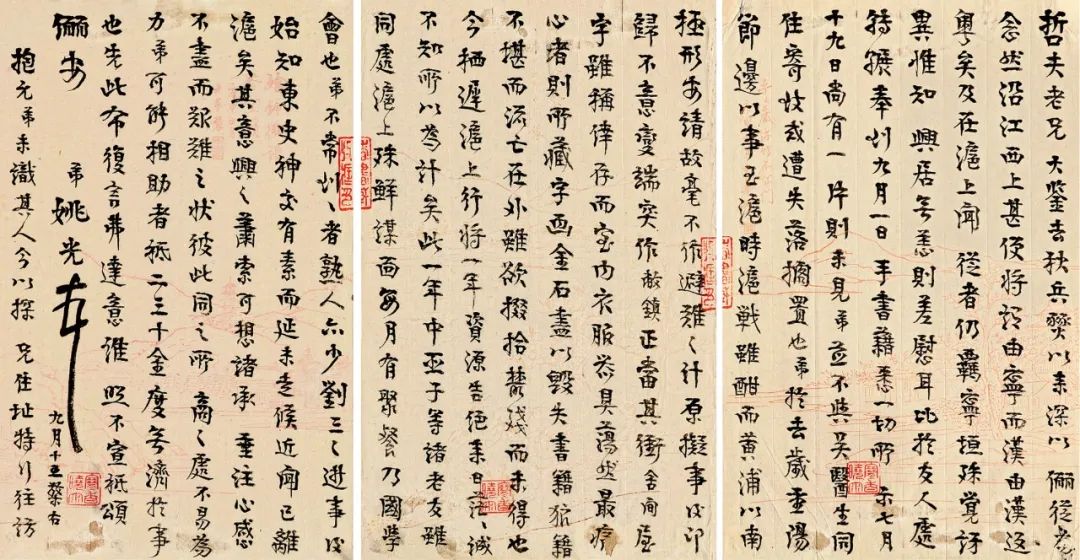 哲夫老兄 大鑒去秋兵燹以來深以 儷從為
念然沿江西上甚便將謂由寧而漢由漢返
粵矣及在滬上聞 從者仍羈寧垣殊覺訝
異惟知 興居無恙則差慰耳比於友人處
轉獲奉到九月一日 手書藉悉一切所 示七月
十九日尚有一片則未見弟並不與吳醫生同
住寄時或遭失落擱置也弟於去歲重陽
節邊以事至滬時滬戰雖酣而黃浦以南
極形安靖故毫不作避難之計原擬事後即
歸不意變端突作敝鎮正當其衝舍間屋
宇雖稱倖存而室內衣服器具蕩然最疚
心者則所藏字画金石盡以毀失書籍狼藉
不堪而流亡在外雖欲掇拾叢殘而未得也
今栖遲滬上行將一年資源告絕來日茫々誠
不知所以為計矣此一年中亞子等諸老友雖
同處滬上殊鮮謀面每月有聚餐乃國學
會也弟不常到々者熟人亦少劉三之逝事後
始知東史神交有素而延未走候近聞已離
滬矣其意興之蕭索可想諸承 垂注心感
不盡而艱難之狀彼此同之所 商之處不易為
力弟可能相助者祗二三十金度無濟於事
也先此布復言弗達意維 照不宣祗頌
儷安
弟姚光
九月十五檠右
抱兄弟未識其人今以探 兄住址特行往訪